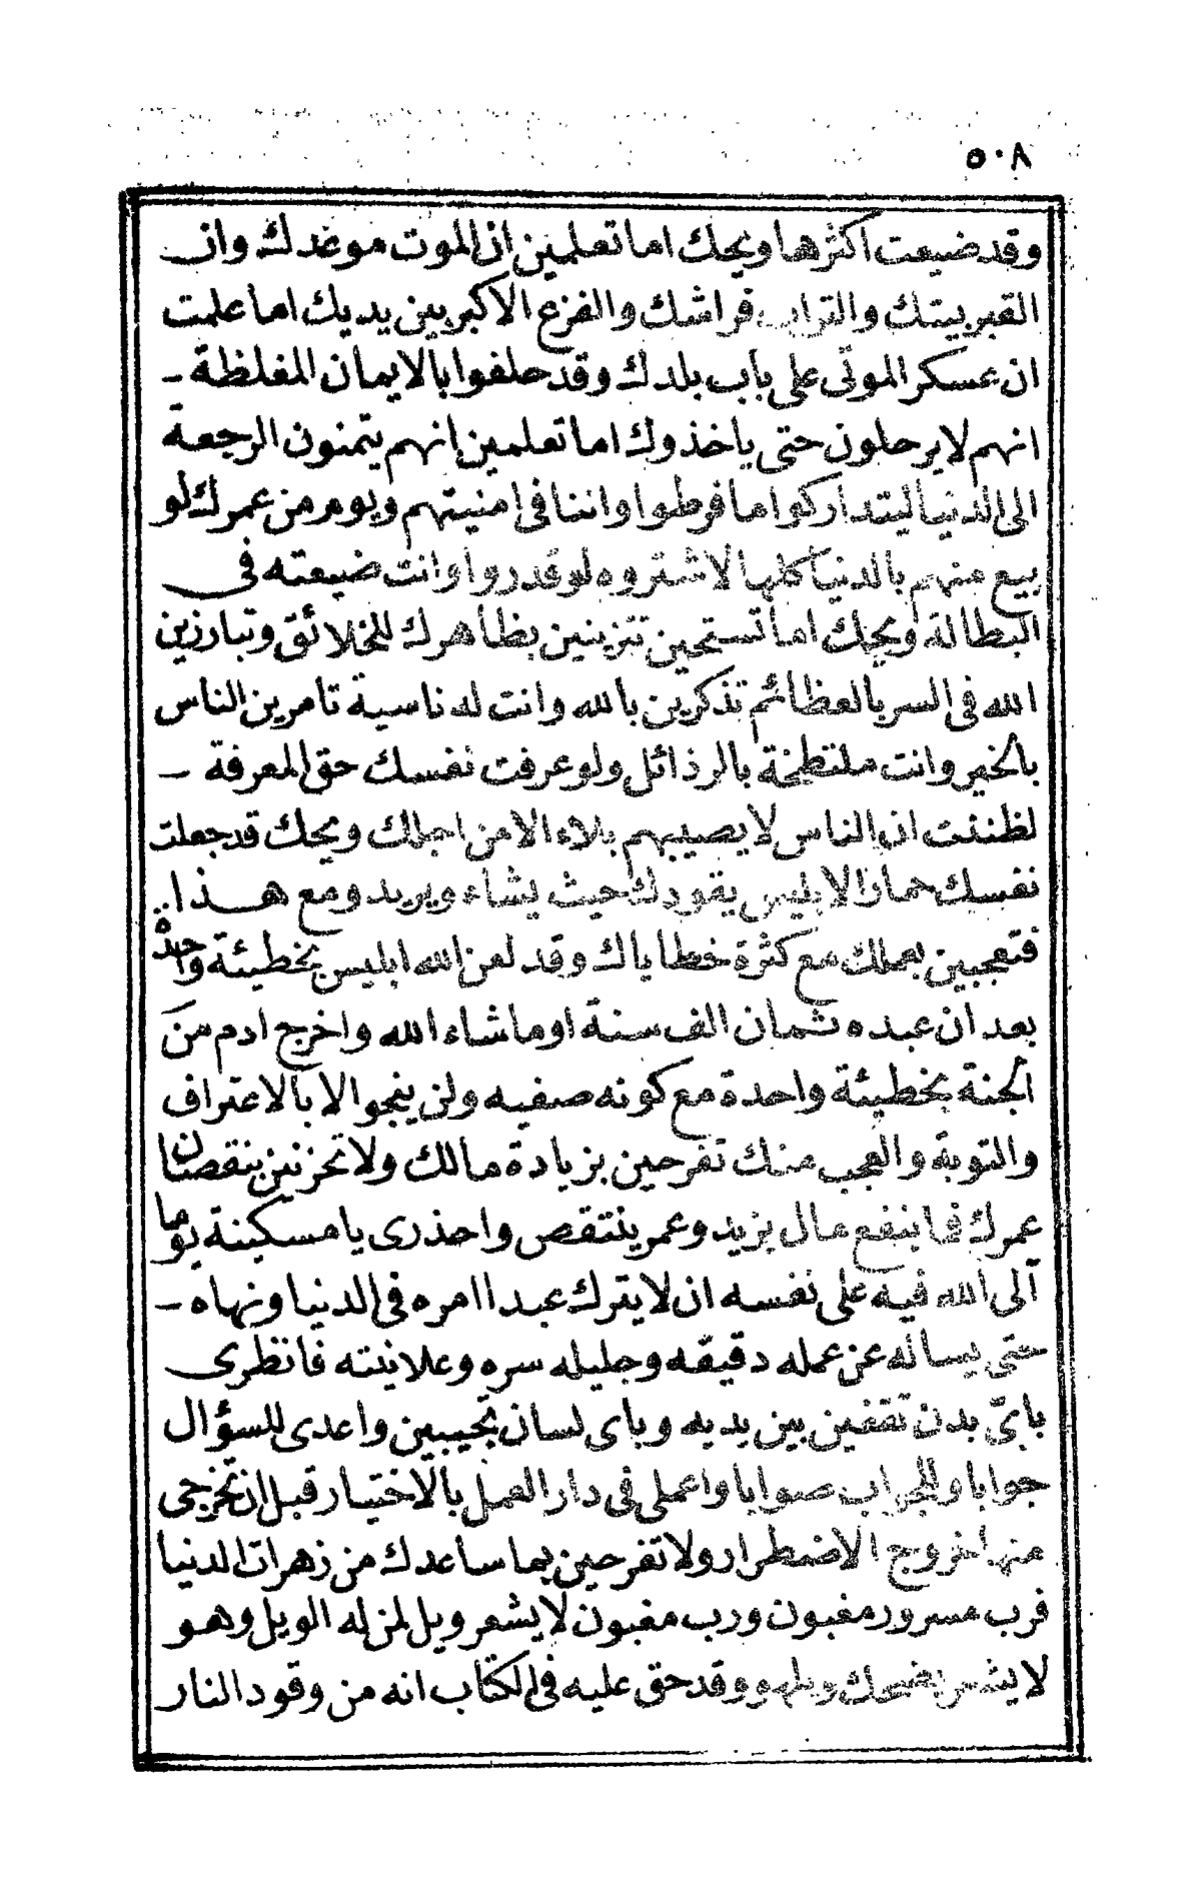 ٥٠٨
وقد ضيعت اكثرها ويحك اما تعلمين ان الموت موعدك وان
القبر بيتك والتراب فراشك والفزع الاكبر بين يديك اما علمت
ان عسكر الموتى على باب بلدك وقد حلفوا بالايمان المغلظة -
انهم لا يرحلون حتى ياخذوك اما تعلمين انهم يتمنون الرجعة
الى الدنيا ليتداركوا ما فرطوا واننا فى امنيتهم ويوم من عمرك لو
بيع منهم بالدنيا كلها لاشتروه لو قدروا وانت ضيعته فى
البطالة ويحك اما تستحين تتزينين بظاهرك للخلائق وتبارزين
الله فى السر بالعظائم تذكرين بالله وانت له ناسية تامرين الناس
بالخير وانت ملتطخة بالرذائل ولو عرفت نفسك حق المعرفة -
لظننت ان الناس لا يصيبهم بلاء الا من اجلك ويحك قد جعلت
نفسك حمارا لابليس يقودك حيث يشاء ويريد ومع هذا..
فتعجبين بعملك مع كثرة خطاياك وقد لعن الله ابليس بخطيئة واحدة
بعد ان عبده ثمان الف سنة او ما شاء الله واخرج ادم من
الجنة بخطيئة واحدة مع كونه صفيه ولن ينجو الا بالاعتراف
والتوبة والعجب منك تفرحين بزيادة مالك ولا تحزنين بنقصان
عمرك فما ينفع مال يزيد وعمر ينتقص واحذرى يا مسكينة يوما
آلى الله فيه على نفسه ان لا يترك عبدا امره فى الدنيا ونهاه -
حتى يساله عن عمله دقيقه وجليله سره وعلانيته فانظرى
باىّ بدن تقفين بين يديه وباى لسان تجيبين واعدى للسؤال
جوابا وللجواب صوابا واعملى فى دار العمل بالاختيار قبل ان تخرجى
منها خروج الاضطرار ولا تفرحين بما ساعدك من زهرات الدنيا
فرب مسرور مغبون ورب مغبون لا يشعر ويل لمن له الويل وهو
لا يشعر يضحك ويلهو وقد حق عليه فى الكتاب انه من وقود النار